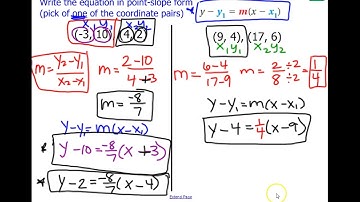 Write the equation in point-slope form
(pick of one of the coordinate pairs)
y - y₁ = m(x - x₁)
x₁ y₁ x₂ y₂
(-3, 10) (4, 2)
m = y₂-y₁ / x₂-x₁
m = 2-10 / 4+3
m = -8/7
y-y₁=m(x-x₁)
y-10 = -8/7(x+3)
y-2 = -8/7(x-4)
(9, 4), (17, 6)
x₁ y₁ x₂ y₂
m = 6-4 / 17-9 m = 2÷2 / 8÷2 = 1/4
y-y₁=m(x-x₁)
y-4 = 1/4(x-9)
Extend Page